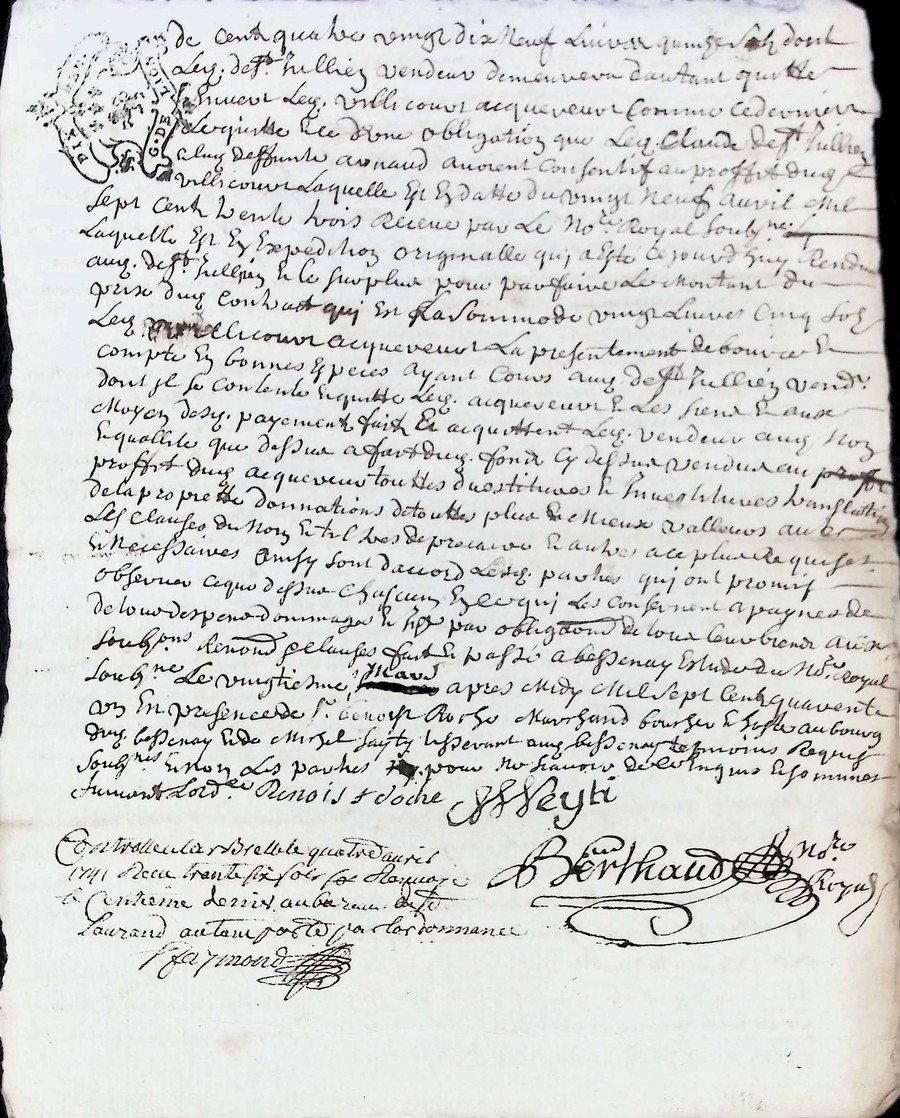 de cent quatre vingt dix Neuf Livres quinze Sols dont
Led. de st. Jullien vendeur demeurera dautant quitte
Envers Led. villicourt acquereur Comme ce dernier
Lequitte de obligation que Led. Claude de st. Jullien
deffunte arnaud avoient Consentif au proffit dud.
villicourt Laquelle Est En datte du vingt Neuf avril Mil
Sept Cent trente trois Receue par Le No.re Royal Soub.ne
Laquelle Est En Expedition originalle qui a Esté Cejourdhuy Rendue
aud. de st. Jullien Et le surplus pour parfaire Le Montant du
prix dud. Contract qui En La Somme de vingt Livres Cinq Sols
Led. villicourt acquereur La presentement debource Et
compté En bonnes Especes ayant Cours aud. de st. Jullien vend.r
dont jl se contente Enquitte Led. acquereur Et Les siens Et aux
Moyen desd. payement fait Et acquittent Led. vendeur aud. Nom
Et quallite que dessus a fait dud. fond Cy dessus vendu au
proffit dud. acquereur touttes devestitures Et Investitures translation
de la propriette donnations de touttes plus Et Mieux valleurs avec
Les clauses du Nom Et tiltres de precaire Et autres a ce plus Requises
Et Necessaires ainsy sont daccord Lesd. parties qui ont promis
observer ce que dessus chascun En ce qui Les Concernent a paynes de
de tous despens dommages Et par obligaons de tous Leurs biens aux
Soub.ons Renonons clauses fait Et passé a bessenay Estude du No.re Royal
Soub.ne Le vingtiesme Mars apres Midy Mil Sept Cent quarente
un En presence de s.r benoist Roche Marchand boucher Et hoste au bourg
dud. bessenay Et de Michel aud. bessenay temoins Requis
Soub.nes Et non Les parties pour ne scavoir de ce Enquis Et sommes
suivant Lord.ce Benoist Roche
Berthaud No.re
Royal
Controllé a Larbrelle le quatre avril
1741 Receu trente six sols
le Centieme denier au bureau de st.
Laurand autant porté par lordonnance
Raymond